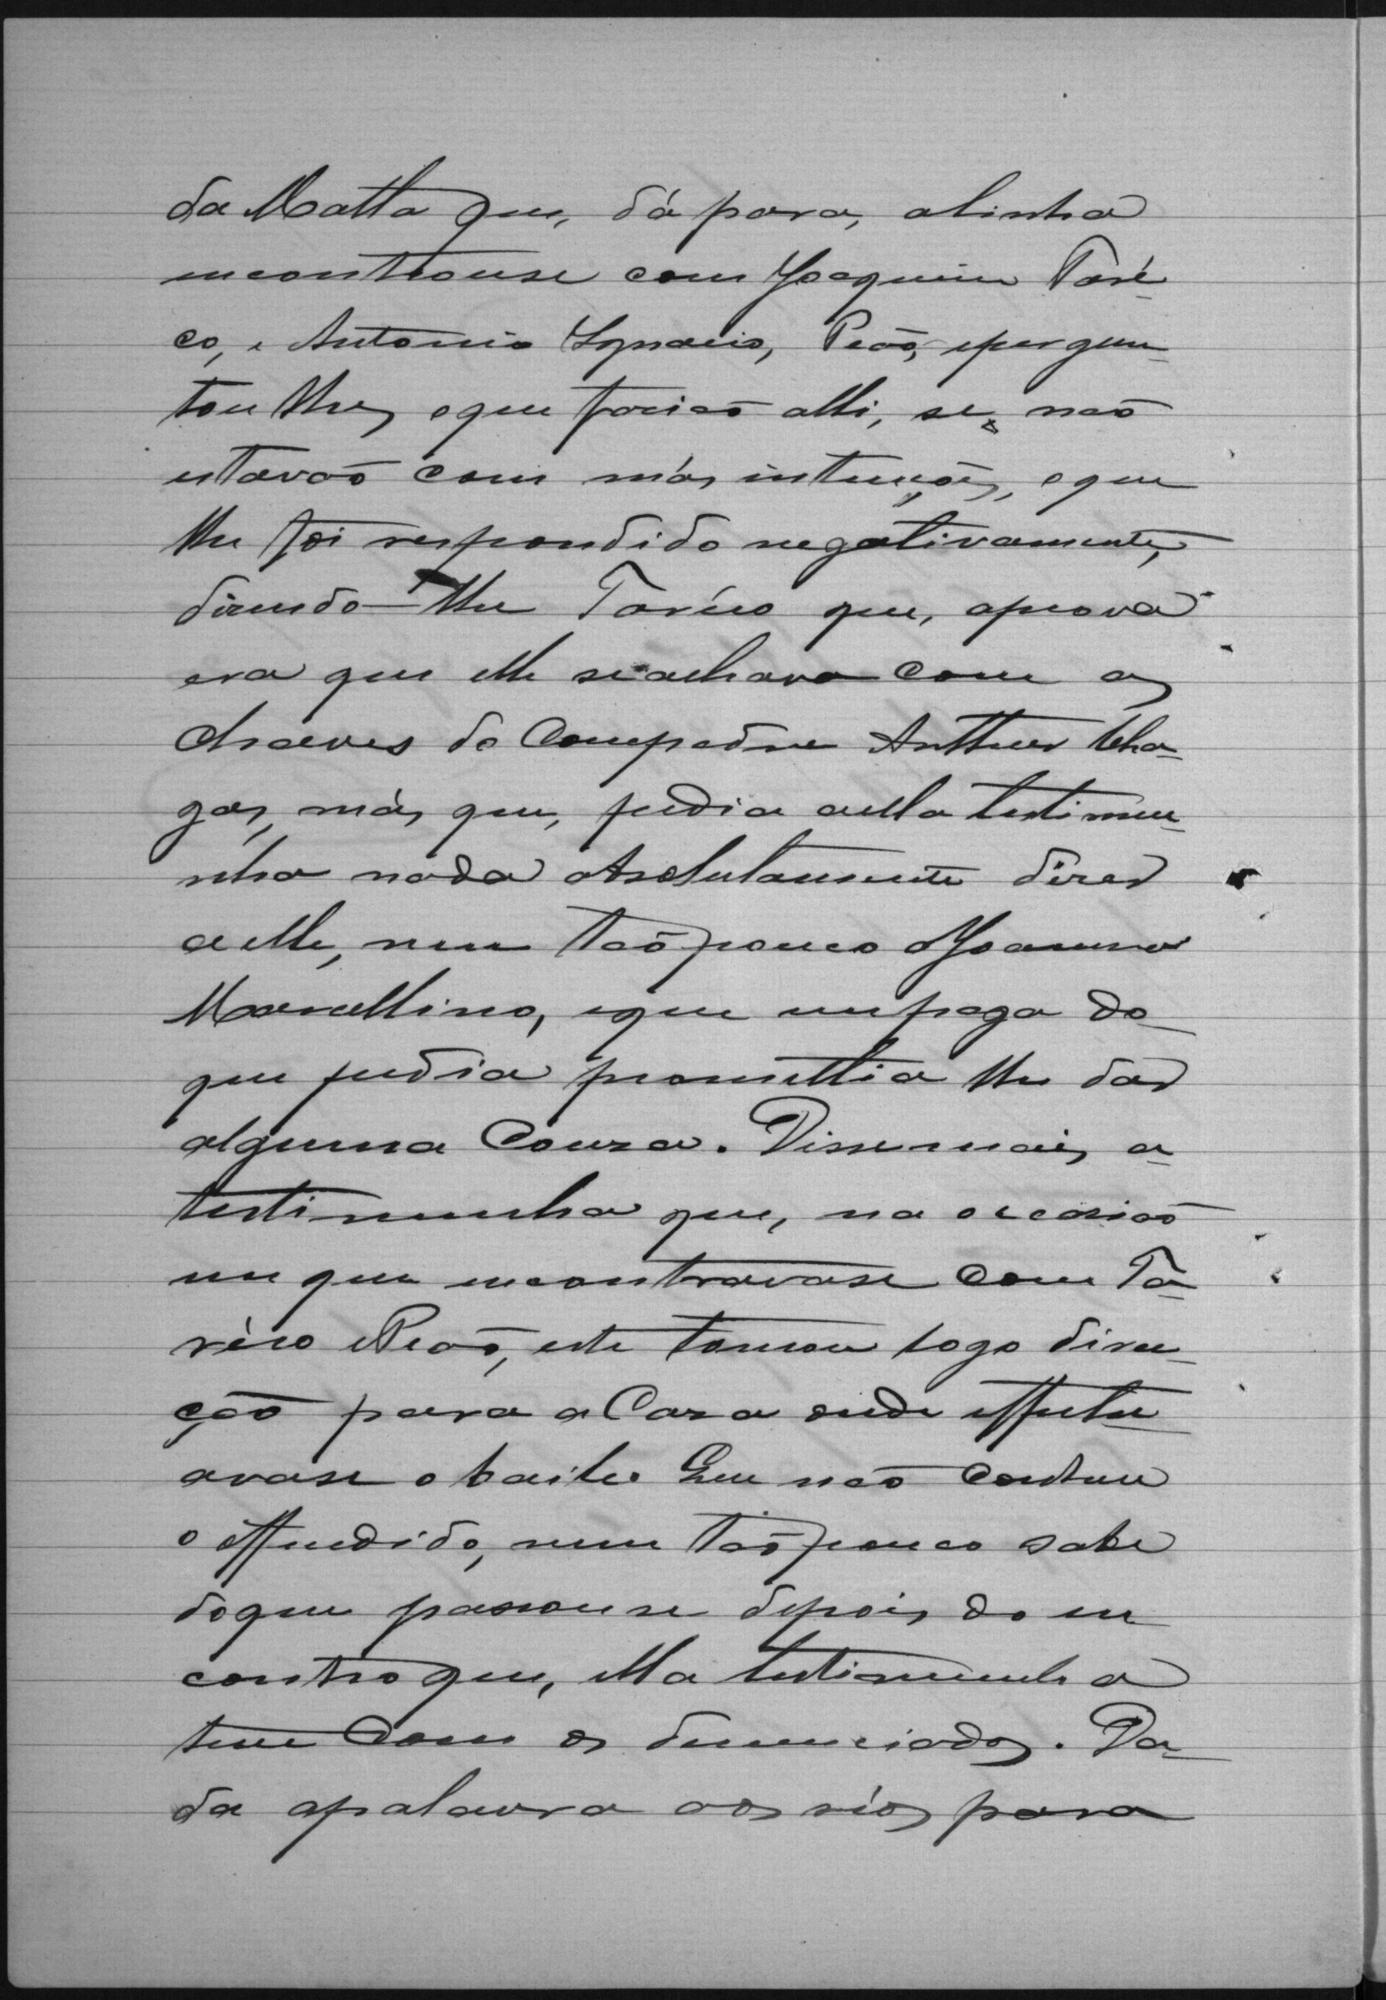 da Matta que, dá para, a linha
incontrouse com Joaquim Taré-
co, e Antonio Ignacio, Peão, e pergun-
tou lhes o que fazião alli, se não
estavão com más intenções, o que
lhe foi respondido negativamente,
dizendo-lhe Taréco que, a prova
era que elle se achava com as
chaves do Compadre Arthur Cha-
gas, más que, pedia a ella testimu-
nha nada absolutamente dizer
a elle, nem tão pouco a Joanna
Marcellino, e que em paga do
que pedia promettia lhe dar
alguma Couza. Disse mais, a
testimunha que, na occasião
em que incontravase com Ta-
réco e Peão, este tomou logo dire-
cção para a Caza onde effectu
avase o baile. Que não Conhece
o offendido, nem tão pouco sabe
do que passouse depois do en
contro que, ella testimunha
teve Com os denunciados. Da-
da a palavra aos réos para